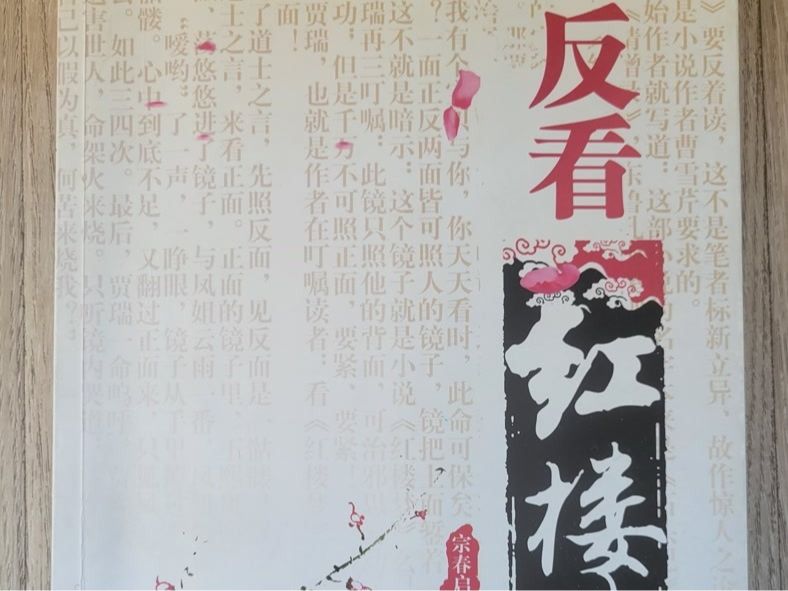 反看
红楼
宗春启
》要反着读，这不是笔者标新立异，故作惊人之论
是小说作者曹雪芹要求的。
始作者就写道：这部
《情僧
我有个 与你，你天天看时，此命可保矣
？一面正反两面皆可照人的镜子，镜把上面錾着
这不就是暗示：这个镜子就是小说《红楼梦》么
瑞再三叮嘱：此镜只照他的背面，可治邪思
功；但是千万不可照正面，要紧，要紧！
贾瑞，也就是作者在叮嘱读者：看《红楼梦
面！
了道士之言，先照反面，见反面是一骷髅
士之言，来看正面。正面的镜子里，王熙凤
荡悠悠进了镜子，与凤姐云雨一番，凤姐
“嗳哟”了一声，一睁眼，镜子从手里
骷髅。心中到底不足，又翻过正面来，只见
去。如此三四次。最后，贾瑞一命呜呼
害世人，命架火来烧。只听镜内哭道
己以假为真，何苦来烧我？”